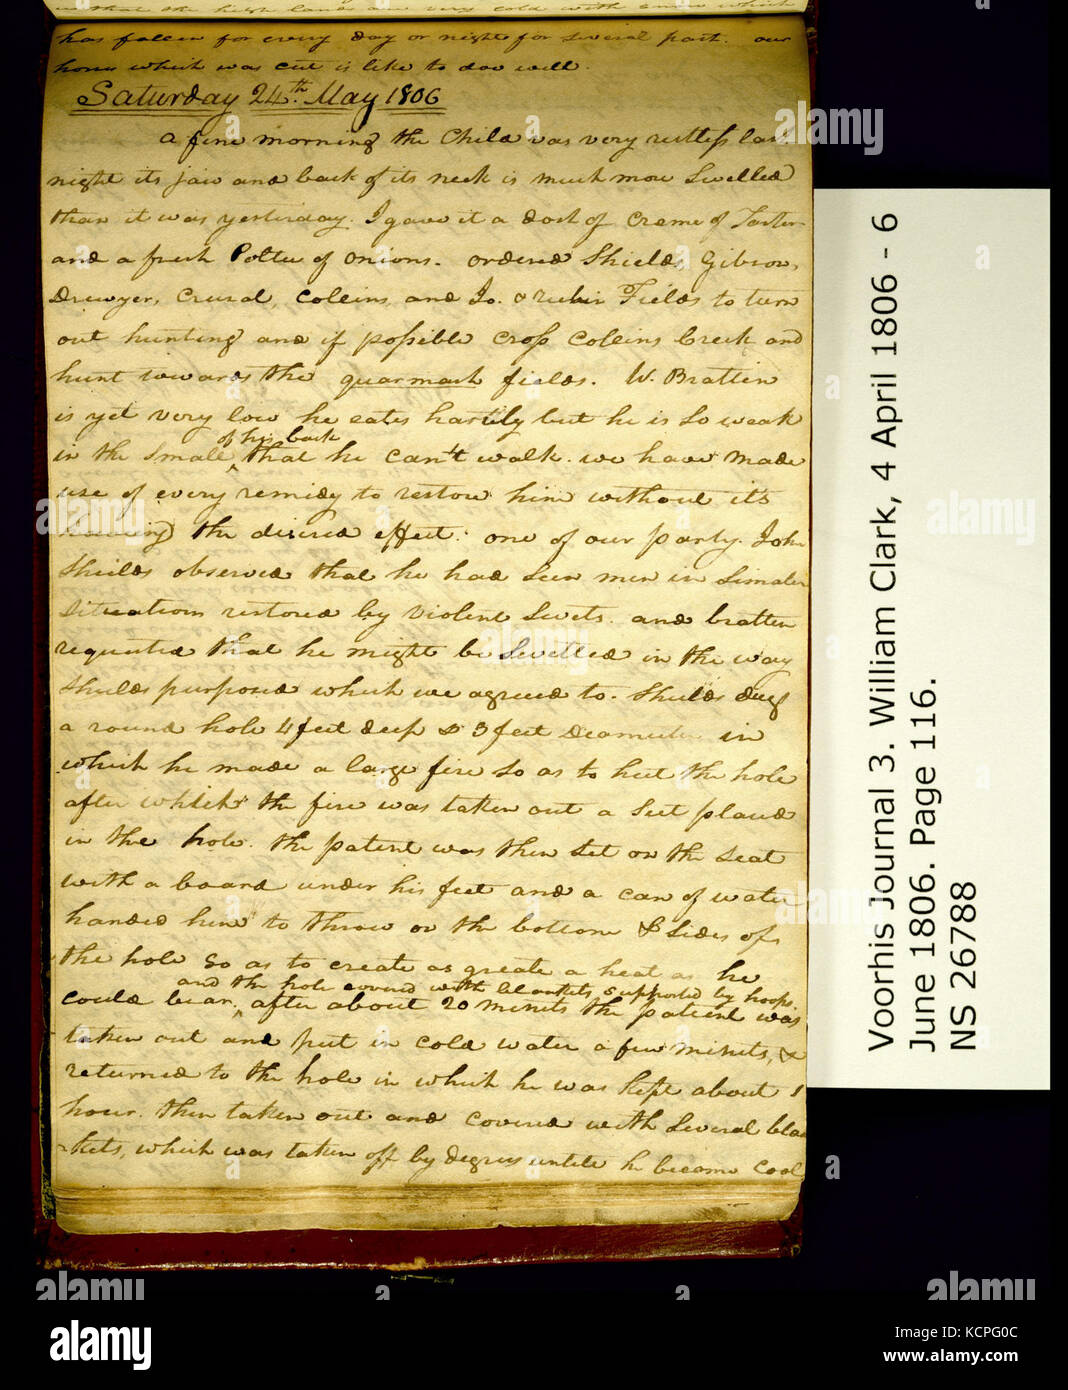 that the high lands are very cold with snow which
has fallen for every day or night for several past. our
horse which was cut is like to doo well.
Saturday 24th May 1806
a fine morning the Child was very restless last
night its jaw and back of its neck is much more Swelled
than it was yesterday. I gave it a dost of Creme of Tarter
and a fresh Poltice of Onions. ordered Shields, Gibson,
Drewyer, Crusat, Collins, and Jo. & rubin Fields to turn
out hunting and if possible Cross Collins Creek and
hunt towards the quarmash fields. W. Bratten
is yet very low he eates hartily but he is So weak
of his back
in the Small ‸ that he can't walk. we have made
use of every remidy to restore him without it's
haveing the desired effect. one of our party. John
Shields observed that he had Seen men in Similar
Situations restored by violent Swets. and bratten
requested that he might be Swetted in the way
Shields purposed which we agreed to. Shields dug
a round hole 4 feet deep & 3 feet Diamuter in
which he made a large fire so as to heet the hole
after which the fire was taken out a Seet placed
in the hole. the patent was then Set on the Seat
with a board under his feet and a can of water
handed him to throw on the bottom & Sides of
the hole So as to create as greate a heat as he
and the hole covered with blankets supported by hoops.
could bear, ‸ after about 20 minits the patient was
taken out and put in cold water a few minits, &
returned to the hole in which he was kept about 1
hour. then taken out and Covered with Several blan
-kets, which was taken off by degrees untill he became Cool
Voorhis Journal 3. William Clark, 4 April 1806 - 6
June 1806. Page 116.
NS 26788
alamy
alamy
alamy
alamy
alamy
alamy
alamy
alamy
a
a
a
a
a
alamy
Image ID: KCPG0C
www.alamy.com